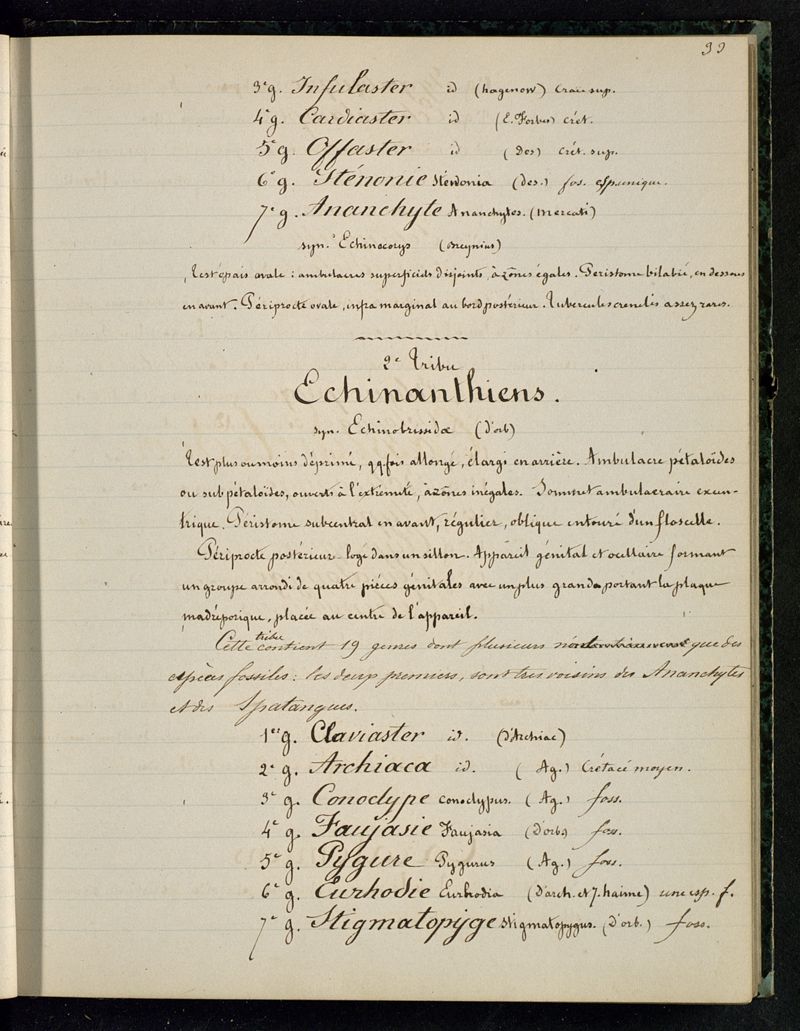 99
3e g. Infulaster id (hagenow) Craie sup.
4e g. Cardiaster id (E. Forbes) crét.
5e g. Offaster id (Des) crét. sup.
6e g. Sténonie Sténonia (Des.) fos. esp. unique.
7e g. Ananchyte Ananchytes. (Mercati)
syn. Echinocorys (Breynius)
Test épais ovale : ambulacres superficiels disjoints, à zônes égales. Péristome bilabié, en dessous
en avant. Périprocte ovale, infra marginal au bord postérieur. Tubercules crenelés assez rares.
2e Tribu
Echinanthiens.
syn. Echinobrissidæ (d'orb)
Test plus ou moins déprimé, qq.fois allongé, élargi en arrière. Ambulacre pétaloïdes
ou subpétaloïdes, ouverts à l'extremité, à zônes inégales. Sommet ambulacraire excen-
trique. Péristome subcentral en avant, régulier, oblique entouré d'un floscelle.
Périprocte postérieur logé dans un sillon. Appareil génital et ocellaire formant
un groupe arrondi de quatre pièces génitales avec un plus grande portant la plaque
madréporique, placée au centre de l'appareil.
Cette tribu contient 19 genres dont plusieurs que des
espèces fossiles : les deux premiers, sont très voisins des Ananchytes
et des Spatangues.
1er g. Claviaster id. (d'Archiac)
2e g. Archiaca id. (Ag.) Crétacé moyen.
3e g. Conoclype Conoclypus. (Ag.) foss.
4e g. Faujasie Faujasia (D'orb) foss.
5e g. Pygure Pygurus (Ag.) foss.
6e g. Eurhodie Eurhodia (D'arch. et J. haime) une esp. f.
7e g. Stigmatopyge Stigmatopygus. (D'orb.) foss.